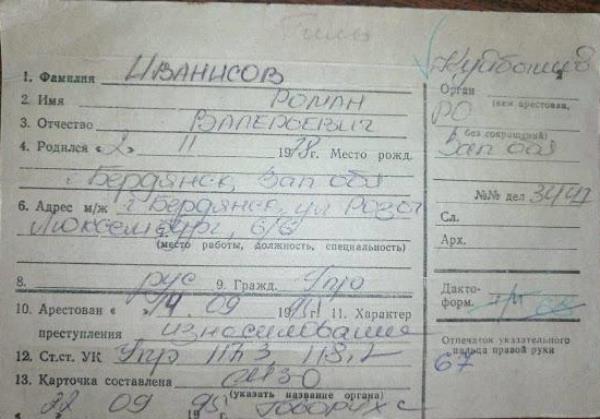 1. Фамилия ИВАНИСОВ
2. Имя РОМАН
3. Отчество ВАЛЕРЬЕВИЧ
4. Родился «2» 11 1978г. Место рожд.
г. Бердянск, Зап обл
6. Адрес м/ж г Бердянск, ул Розы
Люксембург, 6/6
(место работы, должность, специальность)
8. рус 9. Гражд. Укр
10. Арестован « » 14 09 11. Характер
преступления изнасилование
12. Ст.ст. УК Укр 117 3
13. Карточка составлена
(указать название органа)
22 09
Куйбышев
Орган
РО
(кем арестован,
без сокращений)
Зап обл
№№ дел
Сл.
Арх.
Дакто-
форм.
Отпечаток указательного
пальца правой руки
67